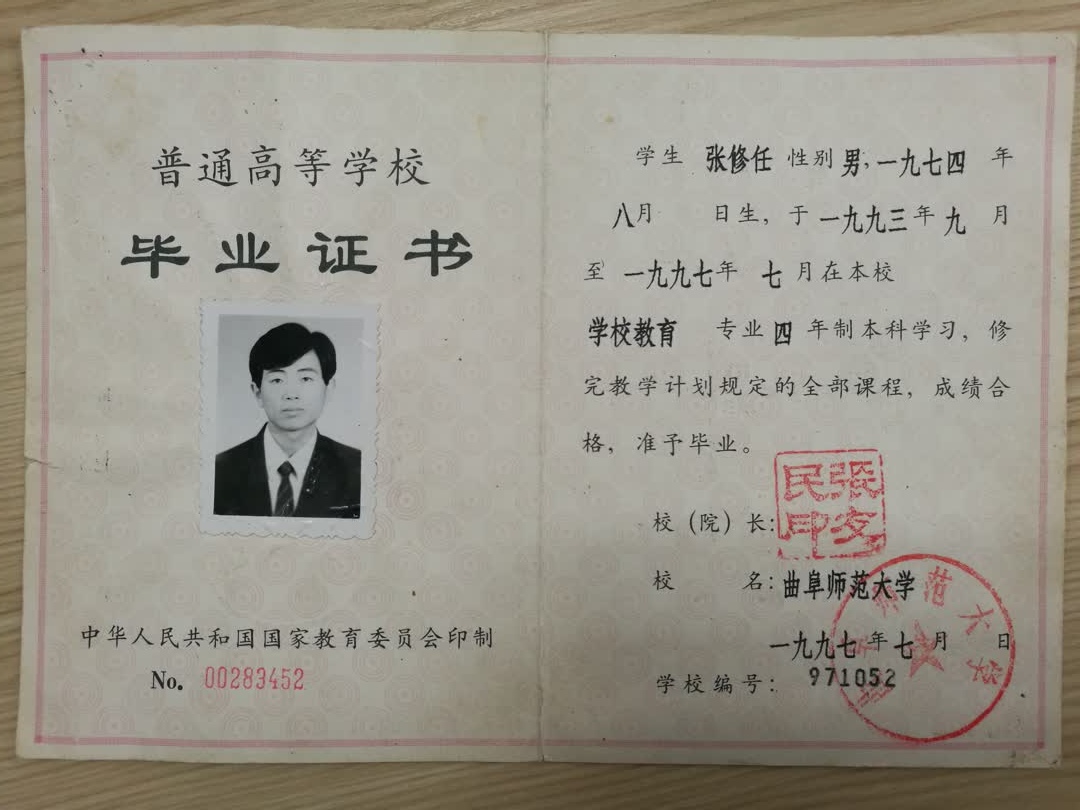 普通高等学校
毕业证书
中华人民共和国国家教育委员会印制
No. 00283452
学生 张修任 性别 男,一九七四 年
八月 日生,于一九九三年九 月
至 一九九七年 七 月在本校
学校教育 专业 四 年制本科学习,修
完教学计划规定的全部课程,成绩合
格,准予毕业。
校(院)长:
校 名:曲阜师范大学
一九九七年七月 日
学校编号: 971052